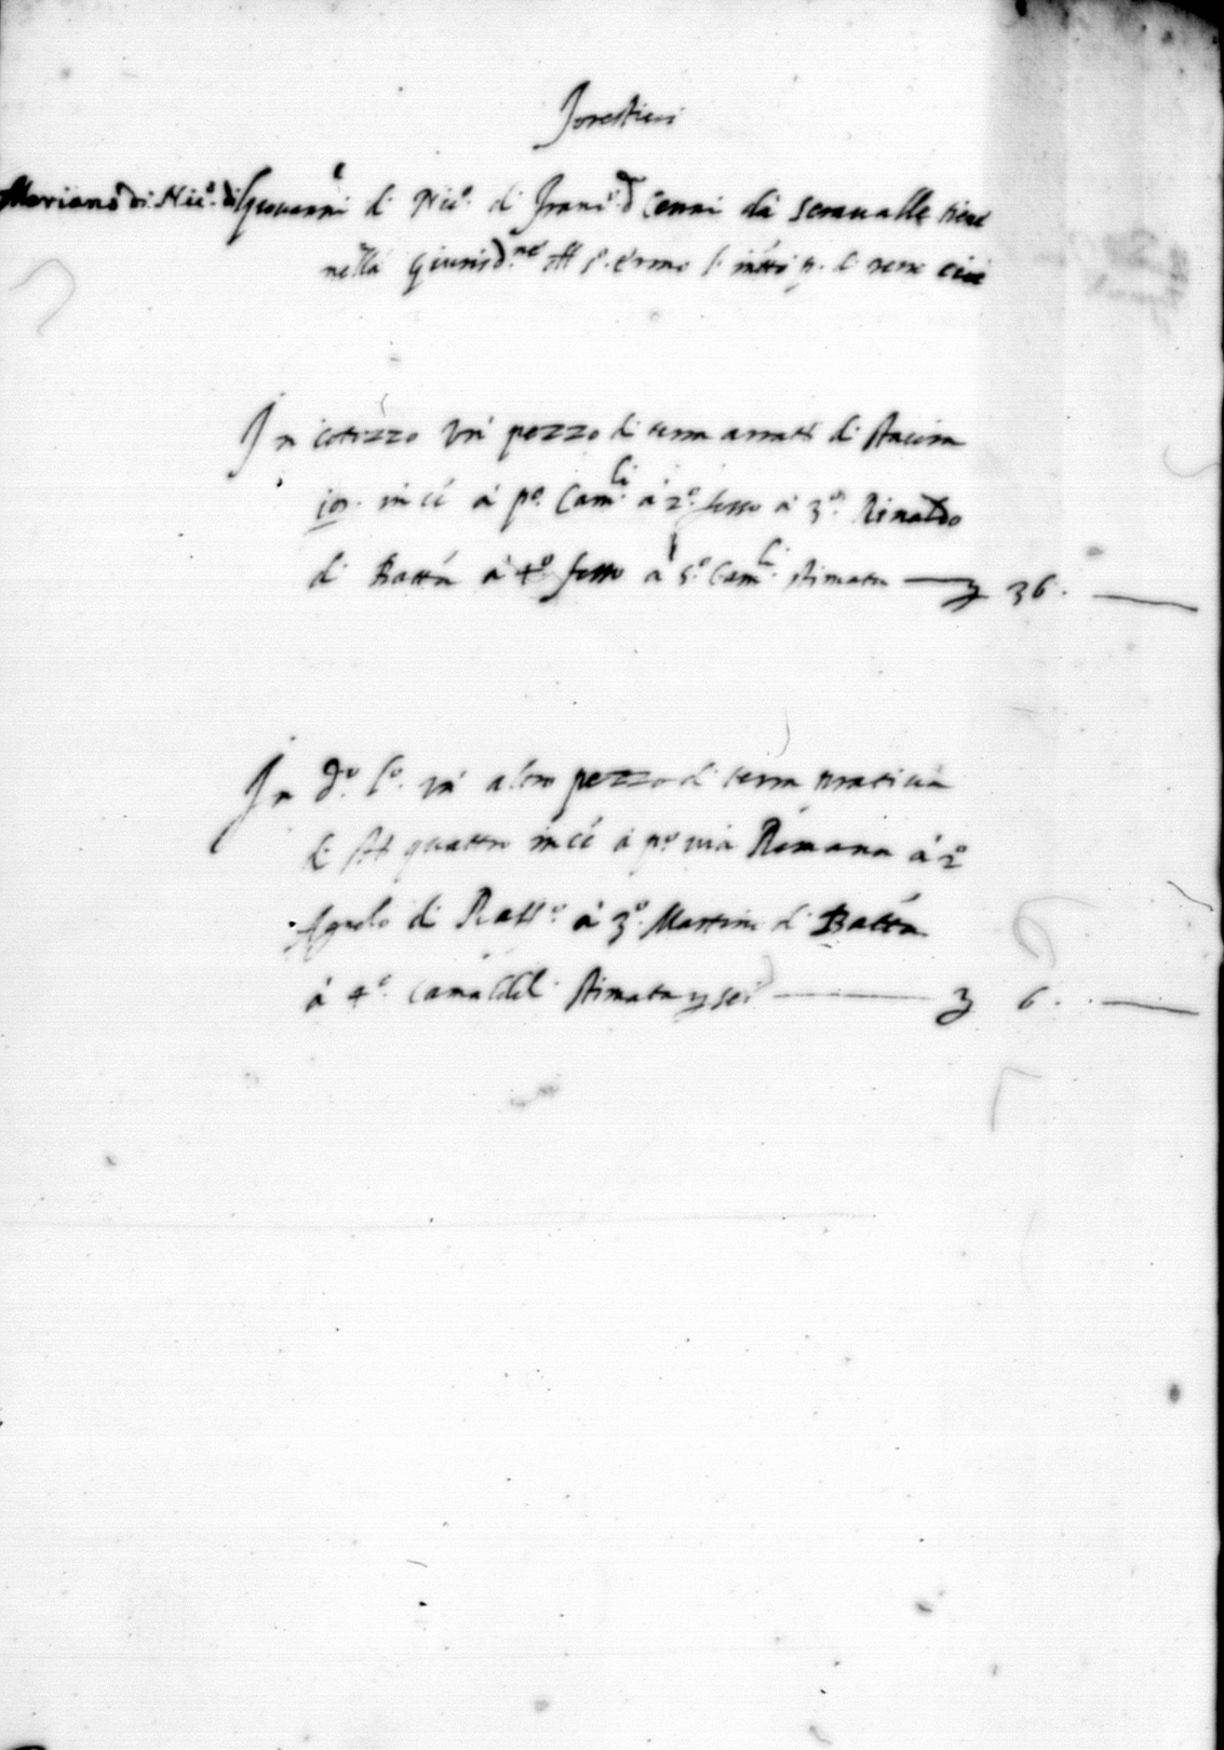 Forestieri
Mariano di Nic.o di Giovanni di Nic.o di Franc.o d Cenni da Serravalle tiene
nella Giurisd.ne S.o Ermo p. di terre cioè
In cotozzo un' pezzo di terra arrati di staiora
in cé à p.o Cam.li à 2.o fosso à 3.o Rinaldo
di Batta à 4.o fosso à 5.o Cam.li stimata 36.
In d.o l.o un' altro pezzo di terra pratiua
di st quattro in cé à p.o uia Romana à 2.o
Agnolo di Raff.o à 3.o Martino di Batta
à 4.o Camaldol. stimata sei 6.